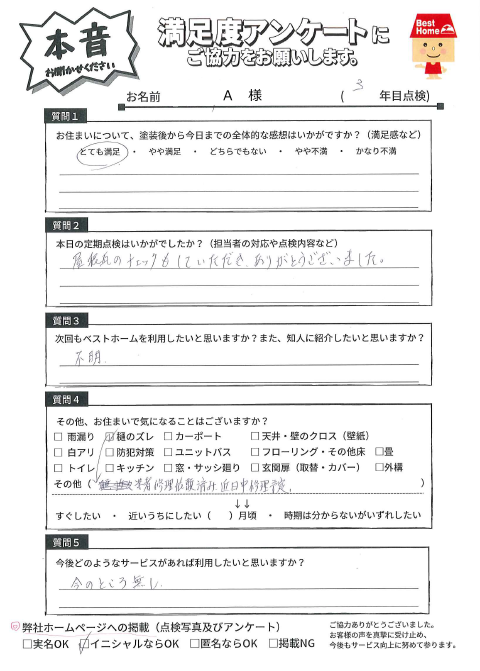 本音
お聞かせください
満足度アンケートに
ご協力をお願いします。
Best Home
お名前 A 様 ( 3 年目点検)
質問1
お住まいについて、塗装後から今日までの全体的な感想はいかがですか？（満足感など）
とても満足 ・ やや満足 ・ どちらでもない ・ やや不満 ・ かなり不満
質問2
本日の定期点検はいかがでしたか？（担当者の対応や点検内容など）
屋根瓦のチェックもしていただき、ありがとうございました。
質問3
次回もベストホームを利用したいと思いますか？また、知人に紹介したいと思いますか？
不明
質問4
その他、お住まいで気になることはございますか？
□ 雨漏り ☑ 樋のズレ □ カーポート □ 天井・壁のクロス（壁紙）
□ 白アリ □ 防犯対策 □ ユニットバス □ フローリング・その他床 □畳
□ トイレ □ キッチン □ 窓・サッシ廻り □ 玄関扉（取替・カバー） □外構
その他（ 業者修理依頼済み 近日中修理予定. ）
↓↓
すぐしたい ・ 近いうちにしたい（ ）月頃 ・ 時期は分からないがいずれしたい
質問5
今後どのようなサービスがあれば利用したいと思いますか？
今のところ無し
弊社ホームページへの掲載（点検写真及びアンケート）
□実名OK ☑イニシャルならOK □匿名ならOK □掲載NG
ご協力ありがとうございました。
お客様の声を真摯に受け止め、
今後もサービス向上に努めて参ります。